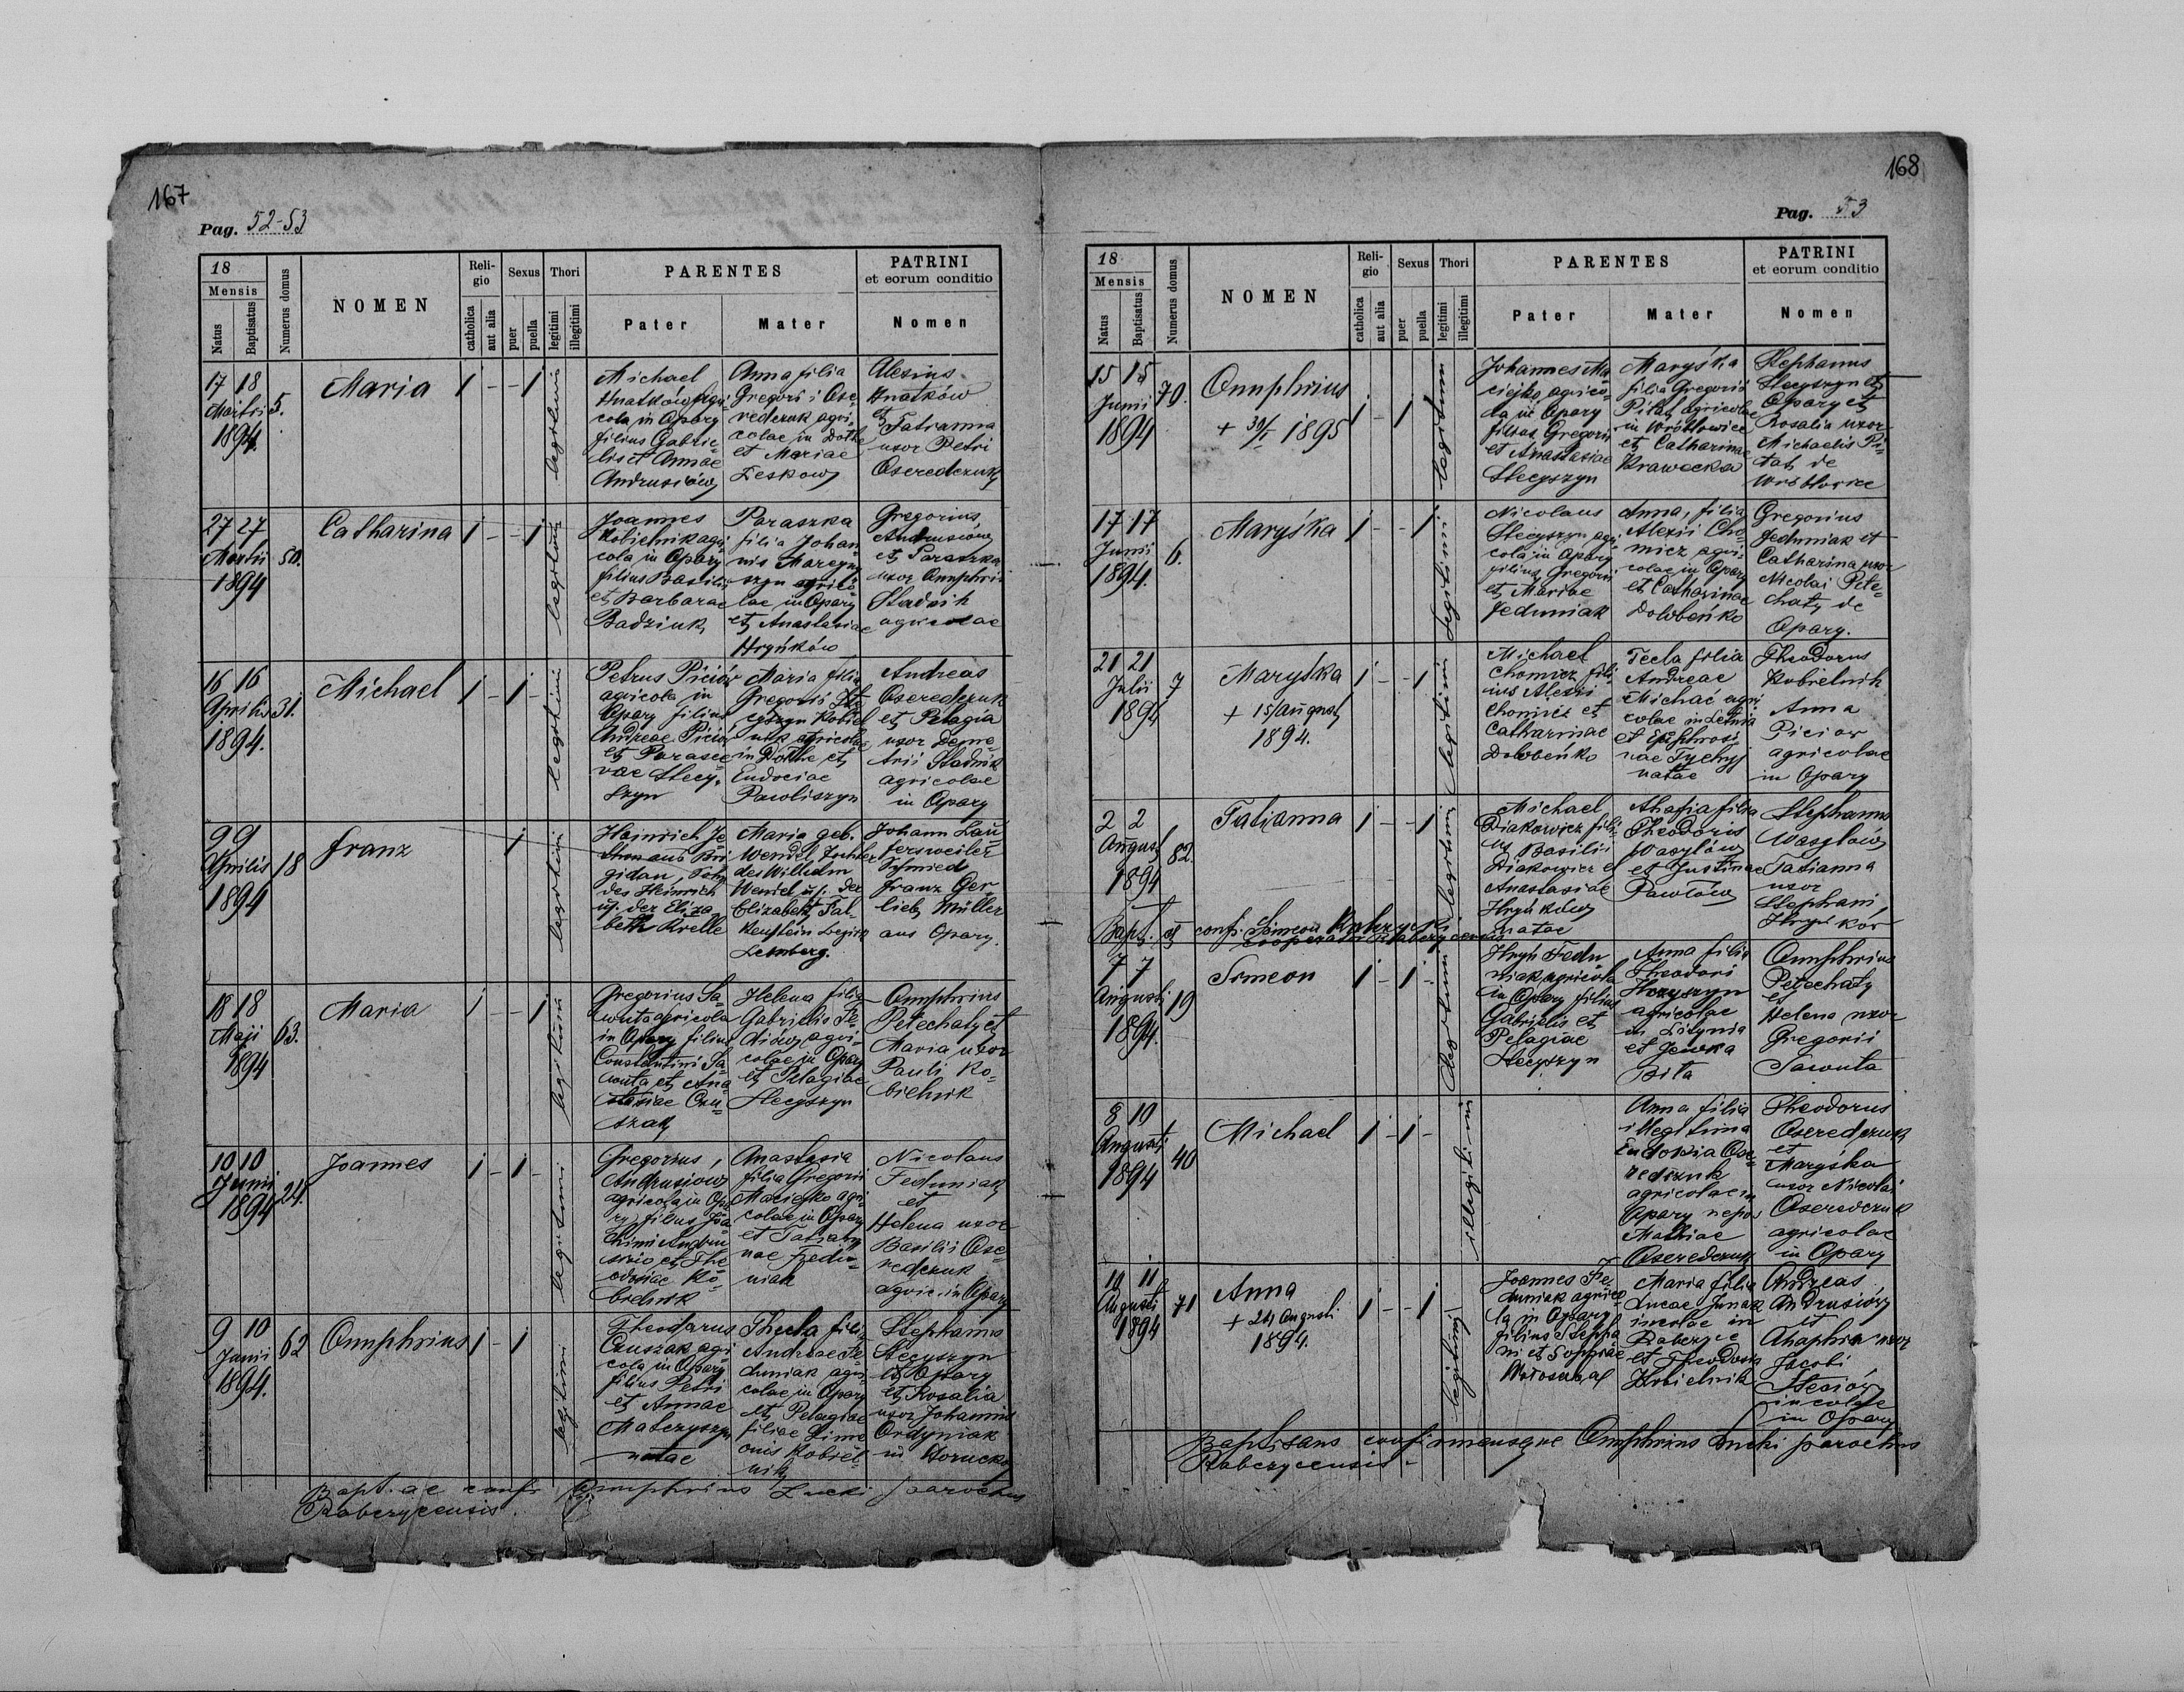 167
Pag. 52-53
18
Mensis
Natus
Baptisatus
Numerus domus
NOMEN
Reli-
gio
catholica
aut alia
Sexus
puer
puella
Thori
legitimi
illegitimi
PARENTES
Pater
Mater
PATRINI
et eorum conditio
Nomen
17 18
Martii
1894.
5.
Maria
1 - - 1
legitimi
Michael
Hnatków agri-
cola in Opary
filius Gabrie-
lis et Annae
Andrusiów
Anna filia
Gregorii Ose-
redczuk agri-
colae in Dołhe
et Mariae
Leskow
Alexius
Hnatków
et
Tatianna
uxor Petri
Oseredczuk
27 27
Martii
1894
50.
Catharina
1 - - 1
legitimi
Joannes
Kobielnik agri
cola in Opary
filius Basilii
et Barbarae
Badziuk
Paraszka
filia Johan
nis Marcyny
szyn agrico
lae in Opary
et Anastasiae
Hryńków
Gregorius
Andrusiow
et Paraszka
uxor Onuphrii
Stadnik
agricolae
16 16
Aprilis
1894.
31.
Michael
1 - 1 -
legitimi
Petrus Piciów
agricola in
Opary filius
Andreae Piciów
et Parasce
vae Stecy-
szyn
Maria filia
Gregorii Ste
cyszyn Kobiel
nik agricolae
in Dołhe et
Eudociae
Pawliszyn
Andreas
Oseredczuk
et Pelagia
uxor Deme-
trii Stadnik
agricolae
in Opary
9 9
Aprilis
1894
18
Franz
1
legitimi
Heinrich Je
aus Bri
gidau, Sohn
des Heinrich
u. der Eliza
beth Krelle
Maria geb.
Wendel Tochter
des Wilhelm
Wendel u. der
Elizabeth Fal-
kenstein Bezirk
Lemberg.
Johann Lau
fersweiler
Schmied
Franz Ger
lieb Müller
aus Opary.
18 18
Maji
1894
63.
Maria
1 - - 1
legitimi
Gregorius Sa-
wuta agricola
in Opary filius
Constantini Sa-
wuta et Ana
stasiae Czu-
szak
Helena filia
Gabrielis Fe-
diów agri-
colae in Opary
et Pelagiae
Stecyszyn
Onuphrius
Petechaty et
Maria uxor
Pauli Ko-
bielnik
10 10
Junii
1894
24.
Joannes
1 - 1 -
legitimi
Gregorius
Andrusiow
agricola in Opa
ry, filius Joa
chimi Andru
siów et The
odosiae Ko-
bielnik
Anastasia
filia Gregorii
Maciejko agri-
colae in Opary
et Tatian-
nae Fedu-
niak
Nicolaus
Feduniak
et
Helena uxor
Basilii Ose-
redczuk
agric. in Opary
9 10
Junii
1894.
62
Onuphrius
1 - 1
legitimi
Theodorus
Czuszak agri
cola in Opary
filius Petri
et Annae
Matczyszyn
natae
Thecla filia
Andreae Fe-
duniak agri-
colae in Opary
et Pelagiae
filiae Sime
onis Kobiel-
nik
Stephanus
Stecyszyn
et Opary
et Rosalia
uxor Johannis
Ordyniak
in Horucko
Bapt. ac conf. Onuphrius Lucki parochus
Rabczycensis.
168
Pag. 53
18
Mensis
Natus
Baptisatus
Numerus domus
NOMEN
Reli-
gio
catholica
aut alia
Sexus
puer
puella
Thori
legitimi
illegitimi
PARENTES
Pater
Mater
PATRINI
et eorum conditio
Nomen
15 15
Junii
1894
70.
Onuphrius
+ 30/1 1895
1 - 1 -
legitimi
Johannes Ma-
ciejko agrico-
la in Opary
filius Gregorii
et Anastasiae
Stecyszyn
Maryśka
filia Gregorii
Pitah agricolae
in Wróblowice
et Catharinae
Krawecka
Stephanus
Stecyszyn et
Opary et
Rosalia uxor
Michaelis Pi-
tah de
Wróblowice
17 17
Junii
1894.
6.
Maryśka
1 - - 1
legitimi
Nicolaus
Stecyszyn agri
cola in Opary
filius Gregorii
et Mariae
Feduniak
Anna, filia
Alexii Cho-
micz agri-
colae in Opary
et Catharinae
Dolobeńko
Gregorius
Feduniak et
Catharina uxor
Nicolai Pete-
chaty de
Opary.
21 21
Julii
1894
7
Maryśka
+ 15/august
1894.
1 - - 1
legitimi
Michael
Chomicz fili
ius Alexii
Chomicz et
Catharinae
Dolobeńko
Tecla filia
Andreae
Michać agri
colae in Letnia
et Euphrosi
nae Tychyj
natae
Theodorus
Kobielnik
Anna
Piciow
agricolae
in Opary
2 2
August
1894
82.
Tatianna
1 - - 1
legitimi
Michael
Diakowicz fili-
us Basilii
Diakowicz et
Anastasiae
Hryńków
natae
Ahafia filia
Theodoris
Wasylów
et Justinae
Pawlów
Stephanus
Wasylów
Tatianna
uxor
Stephani
Hryńków
Bapt. et conf. Simeon
cooperator Rabczycensis
7 7
Augusti
1894.
19
Simeon
1 - 1 -
legitimi
Hryń Fedu
niak agricola
in Opary filius
Gabrielis et
Pelagiae
Stecyszyn
Anna filia
Theodori
Hryszyn
agricolae
in Litynia
et Jewka
Bita
Onuphrius
Petechaty
et
Helena uxor
Gregorii
Sawuta
8 10
Augusti
1894
40
Michael
1 - 1 -
illegitimi
Anna filia
illegitima
Eudokia Ose-
redczuk
agricolae in
Opary nepos
Mathiae
Oseredczuk
Theodorus
Oseredczuk
et
Maryśka
uxor Nicolai
Oseredczuk
agricolae
in Opary
10 11
Augusti
1894
71
Anna
+ 24 augusti
1894.
1 - - 1
legitimi
Joannes Fe
duniak agrico
la in Opary
filius Stepha
ni et Sophiae
Maria filia
Lucae Junak
incolae in
Rabczyce
et Theodosia
Kobielnik
Andreas
Andrusiów
et
Ahaphia uxor
Jacobi
Stesiów
incolae
in Opary
Baptisans confirmansque Onuphrius Lucki parochus
Rabczycensis.